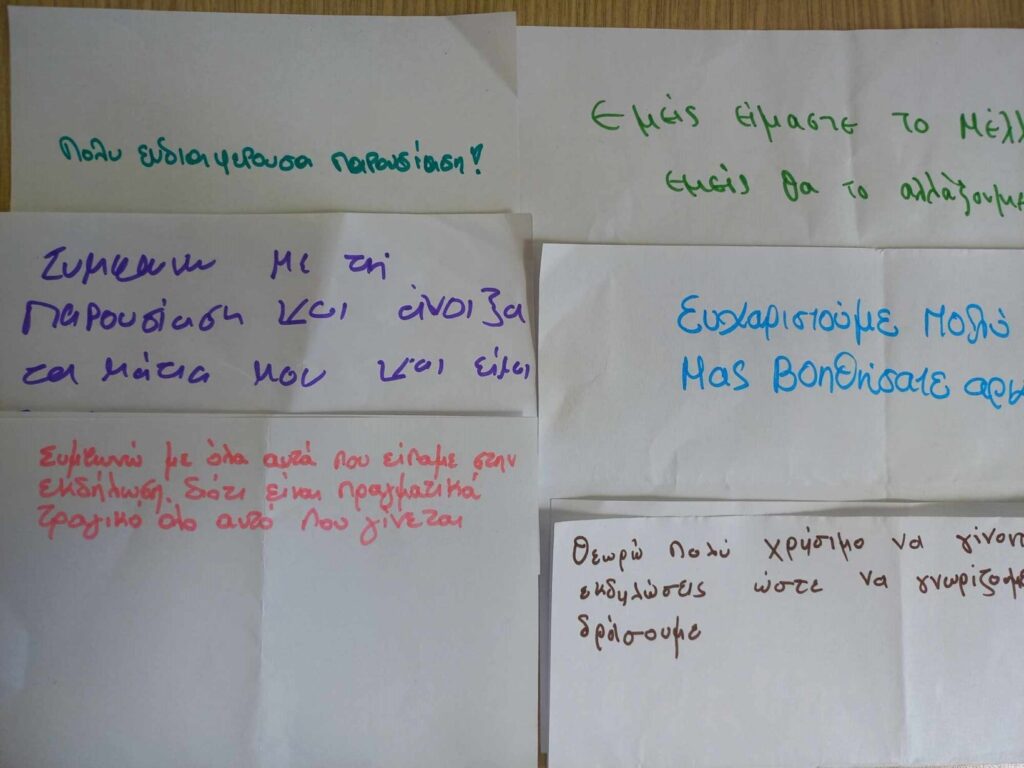 Πολυ ενδιαφερουσα παρουσίαση!
Εμείς είμαστε το μέλλ
εμείς θα το αλλάξουμε
Συμφωνω με τη
παρουσίαση και άνοιξα
τα μάτια μου και είμαι
Ευχαριστούμε πολύ
Μας βοηθήσατε αρκ
Συμφωνώ με όλα αυτά που είπαμε στην
εκδήλωση. διότι είναι πραγματικά
τραγικό όλο αυτό που γίνεται
Θεωρώ πολύ χρήσιμο να γίνοντ
εκδηλώσεις ώστε να γνωρίζουμε
δράσουμε